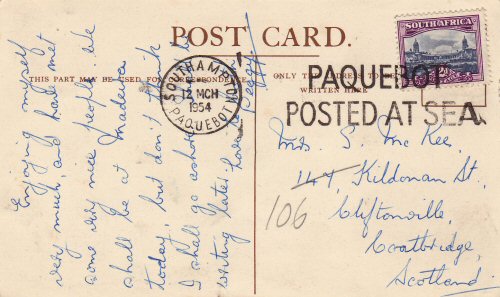 POST CARD.
THIS PART MAY BE USED FOR CORRESPONDENCE
ONLY THE
WRITTEN HERE
SOUTH AFRICA
SOUTHAMPTON
12 MCH
1954
PAQUEBOT
PAQUEBOT
POSTED AT SEA
Enjoying myself
very much, and have met
some very nice people. We
shall be at Madeira
today, but don't think
I shall go ashore.
writing later. Love
Mrs. S. Mc Kee,
147, Kildonan St.,
106
Cliftonville,
Coatbridge,
Scotland.